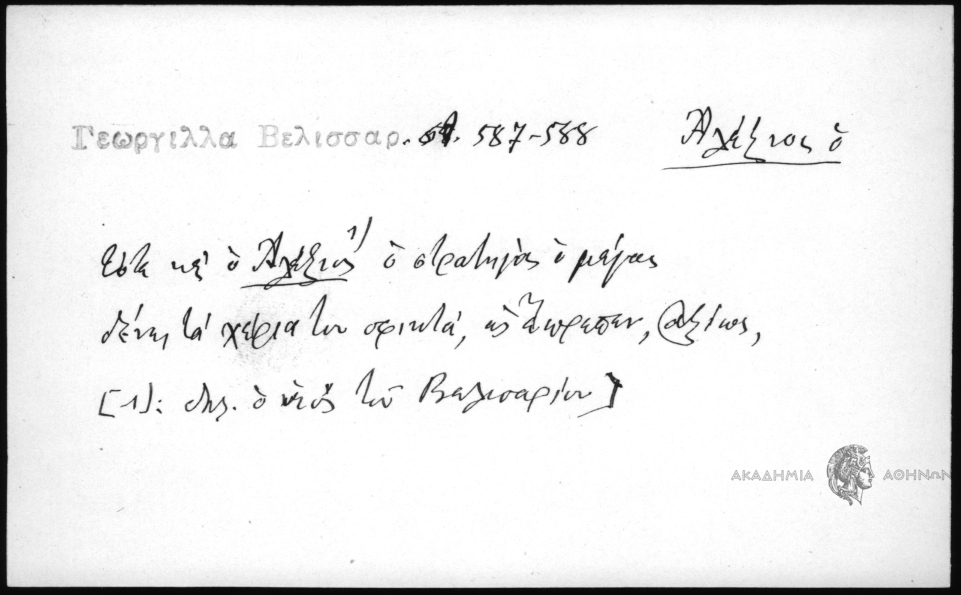 Γεωργιλλα Βελισσαρ. στ. 587-588
Ἀλέξιος ὁ
ὁ Ἀλέξιος 1) ὁ στρατηγὸς ὁ μέγας
δένει τὰ χέρια του σφικτά, ὡς ἔπρεπεν, ἀξίως,
[1): δηλ. ὁ υἱὸς τοῦ Βελισαρίου]
ΑΚΑΔΗΜΙΑ ΑΘΗΝΩΝ